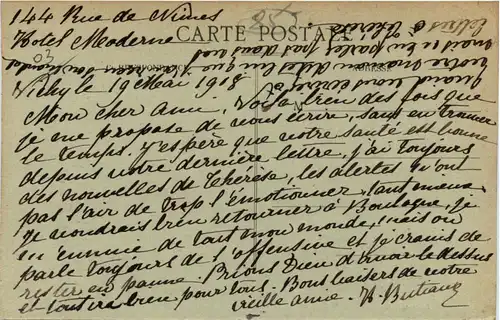 144 Rue de Nimes
Hotel Moderne
CARTE POSTALE
CORRESPONDANCE
ADRESSE
Vichy le 19 Mai 1918
Mon cher ami, Voilà bien des fois que
je me propose de vous écrire, sans en trouver
le temps. J'espère que votre santé est bonne
depuis votre dernière lettre, j'ai toujours
des nouvelles de Thérèse, les alertes n'ont
pas l'air de trop l'émotionner, tant mieux
Je voudrais bien retourner à Boulogne, je
m'ennuie de tout mon monde, mais on
parle toujours de l'offensive et je crains de
rester en panne. Prions Dieu d'avoir le dessus
et tout ira bien pour tous. Bons baisers de votre
vieille amie.